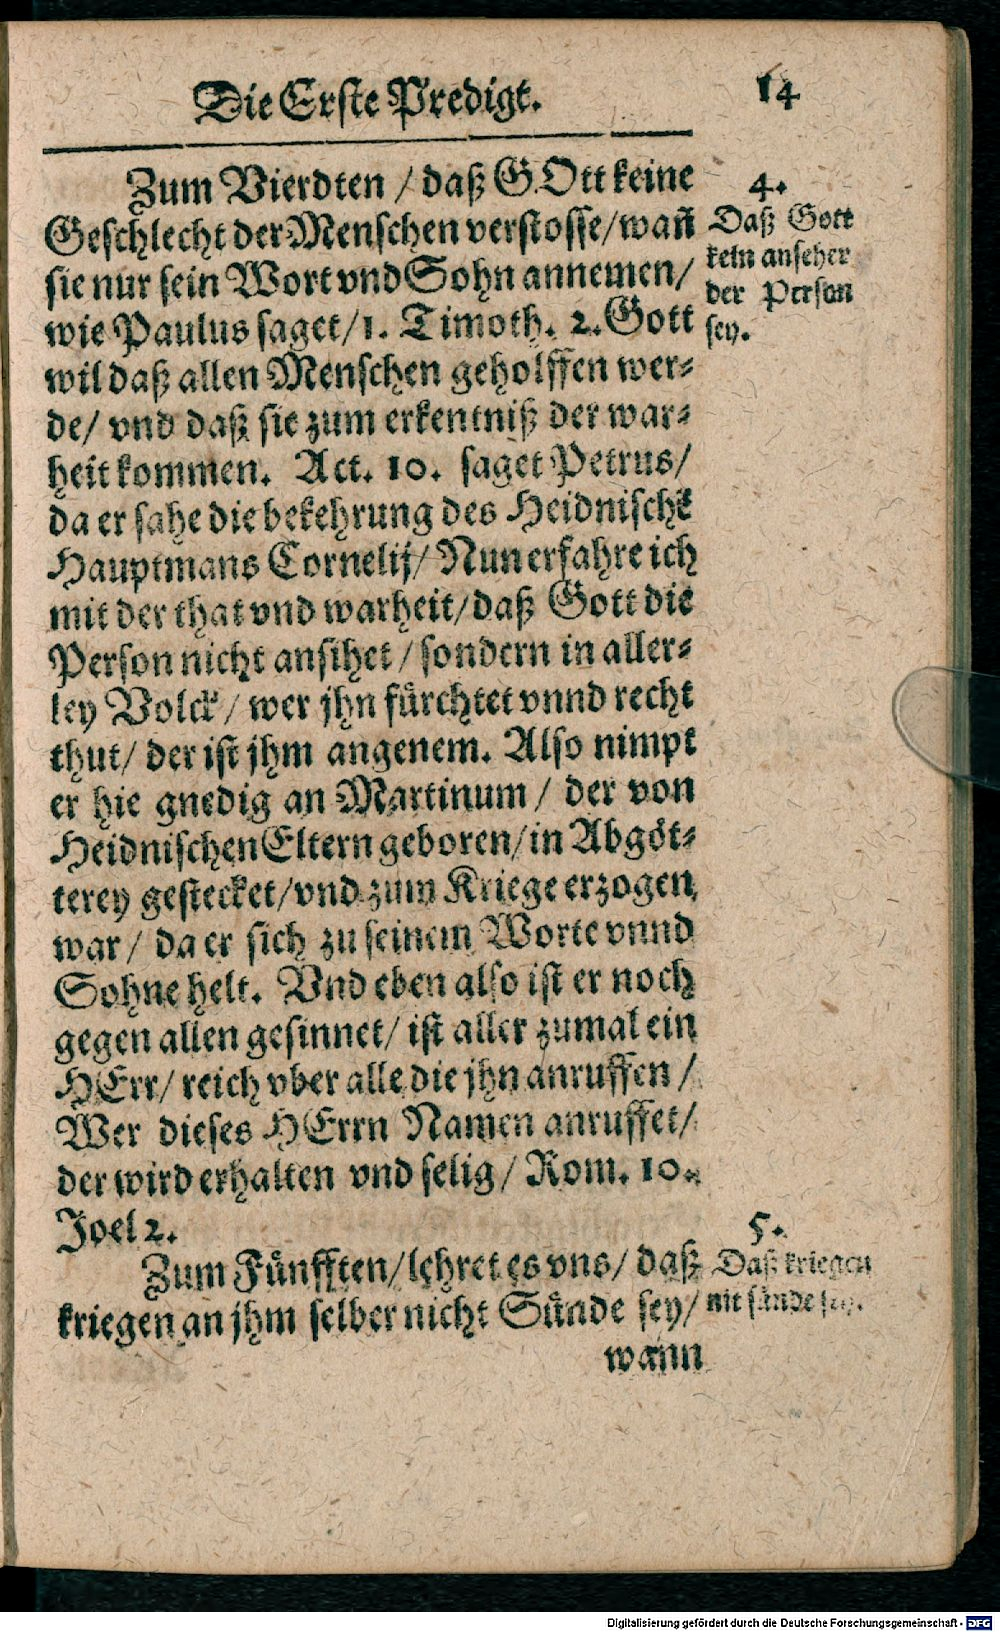 Die Erste Predigt. 14
Zum Vierdten / daß GOtt keine
Geschlecht der Menschen verstosse / wañ
sie nur sein Wort vnd Sohn annemen /
wie Paulus saget / 1. Timoth. 2. Gott
wil daß allen Menschen geholffen wer⸗
de / vnd daß sie zum erkentniß der war⸗
heit kommen. Act. 10. saget Petrus /
da er sahe die bekehrung des Heidnischẽ
Hauptmans Cornelij / Nun erfahre ich
mit der that vnd warheit / daß Gott die
Person nicht ansihet / sondern in aller⸗
ley Volck / wer jhn fürchtet vnnd recht
thut / der ist jhm angenem. Also nimpt
er hie gnedig an Martinum / der von
Heidnischen Eltern geboren / in Abgöt⸗
terey gestecket / vnd zum Kriege erzogen
war / da er sich zu seinem Worte vnnd
Sohne helt. Vnd eben also ist er noch
gegen allen gesinnet / ist aller zumal ein
HErr / reich vber alle die jhn anruffen /
Wer dieses HErrn Namen anruffet /
der wird erhalten vnd selig / Rom. 10.
Joel 2.
Zum Fünfften / lehret es vns / daß
kriegen an jhm selber nicht Sünde sey /
wann
4.
Daß Gott
kein anseher
der Person
sey.
5.
Daß kriegen
nit sünde sey.
Digitalisierung gefördert durch die Deutsche Forschungsgemeinschaft - DFG